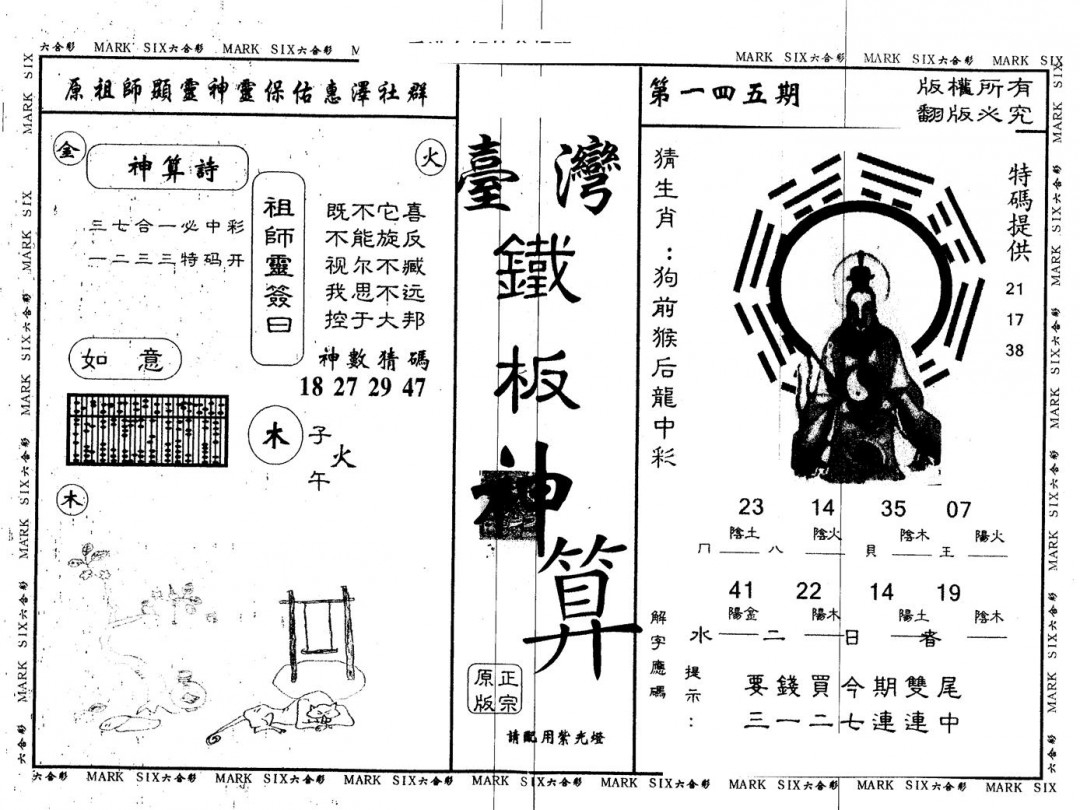 六合彩 MARK SIX六合彩 MARK SIX六合彩 M
MARK SIX六合彩 MARK SIX六合彩 MARK SIX
原祖師顯靈神靈保佑惠澤社群
金
神算詩
三七合一必中彩
一二三三特码开
火
祖師靈簽曰
既不它喜
不能旋反
视尔不臧
我思不远
控于大邦
神數猜碼
18 27 29 47
如意
木
子
火
午
木
臺灣
鐵板神算
正宗
原版
請配用紫光燈
第一四五期
版權所有
翻版必究
猜生肖：狗前猴后龍中彩
特碼提供
21
17
38
23 14 35 07
陰土 陰火 陰木 陽火
八 貝 王
41 22 14 19
陽金 陽木 陽土 陰木
水 二 日 春
解字應碼
提示：
要錢買今期雙尾
三一二七連連中
六合彩 MARK SIX六合彩 MARK SIX六合彩 MARK SIX六合彩 MARK SIX六合彩 MARK SIX六合彩 MARK SIX六合彩 MARK SIX
MARK SIX六合彩 MARK SIX六合彩 MARK SIX六合彩 MARK SIX六合彩 MARK SIX
MARK SIX六合彩 MARK SIX六合彩 MARK SIX六合彩 MARK SIX六合彩 MARK SIX六合彩